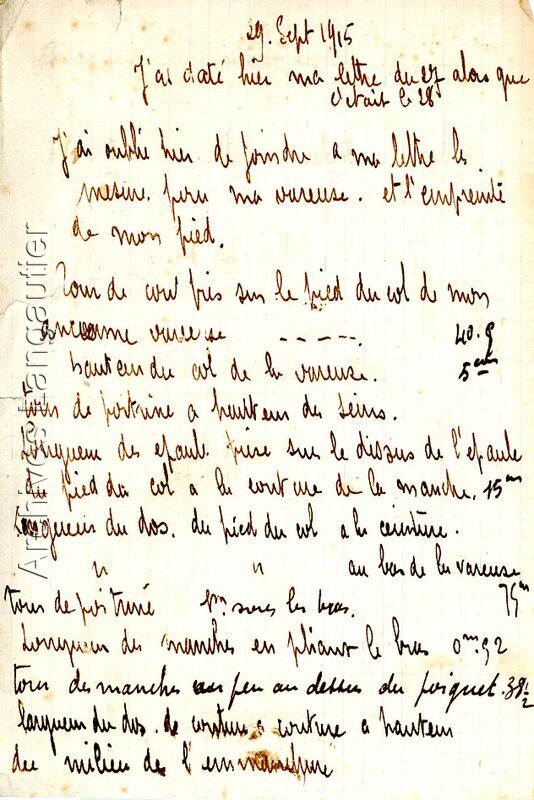 29. Sept 1915
J'ai daté hier ma lettre du 27 alors que
c'était le 28
J'ai oublié hier de joindre a ma lettre les
mesure pour ma vareuse. et l'empreinte
de mon pied.
Tour de cou pris sur le pied du col de mon
ancienne vareuse - - - - -. 40.9
hauteur du col de la vareuse. 5 cm
tour de poitrine a hauteur des seins.
Longueur des epaule prise sur le dessus de l'epaule
du pied du col a la couture de la manche. 15 cm
Longueur du dos. du pied du col a la ceinture.
" " au bas de la vareuse
tour de poitrine sous les bras. 75 cm
Longueur des manches en pliant le bras 0m.92
tour des manches un peu au dessus du poignet. 38 1/2
largueur du dos. de couture a couture a hauteur
du milieu de l'emmanchure
Archives Lancautier